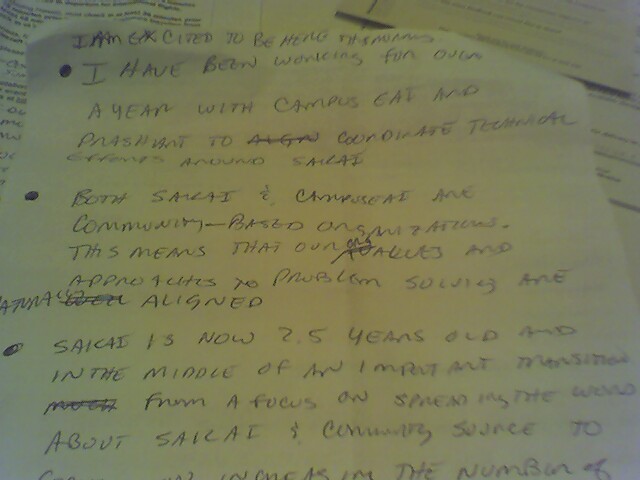 I AM EXCITED TO BE HERE THIS MORNING.
• I HAVE BEEN WORKING FOR OVER
A YEAR WITH CAMPUS EAI AND
PRASHANT TO ALIGN COORDINATE TECHNICAL
EFFORTS AROUND SAKAI
• BOTH SAKAI & CAMPUSEAI ARE
COMMUNITY-BASED ORGANIZATIONS.
THIS MEANS THAT OUR VALUES AND
APPROACHES TO PROBLEM SOLVING ARE
ALIGNED
• SAKAI IS NOW 2.5 YEARS OLD AND
IN THE MIDDLE OF AN IMPORTANT TRANSITION
FROM A FOCUS ON SPREADING THE WORD
ABOUT SAKAI & COMMUNITY SOURCE TO
THE NUMBER OF